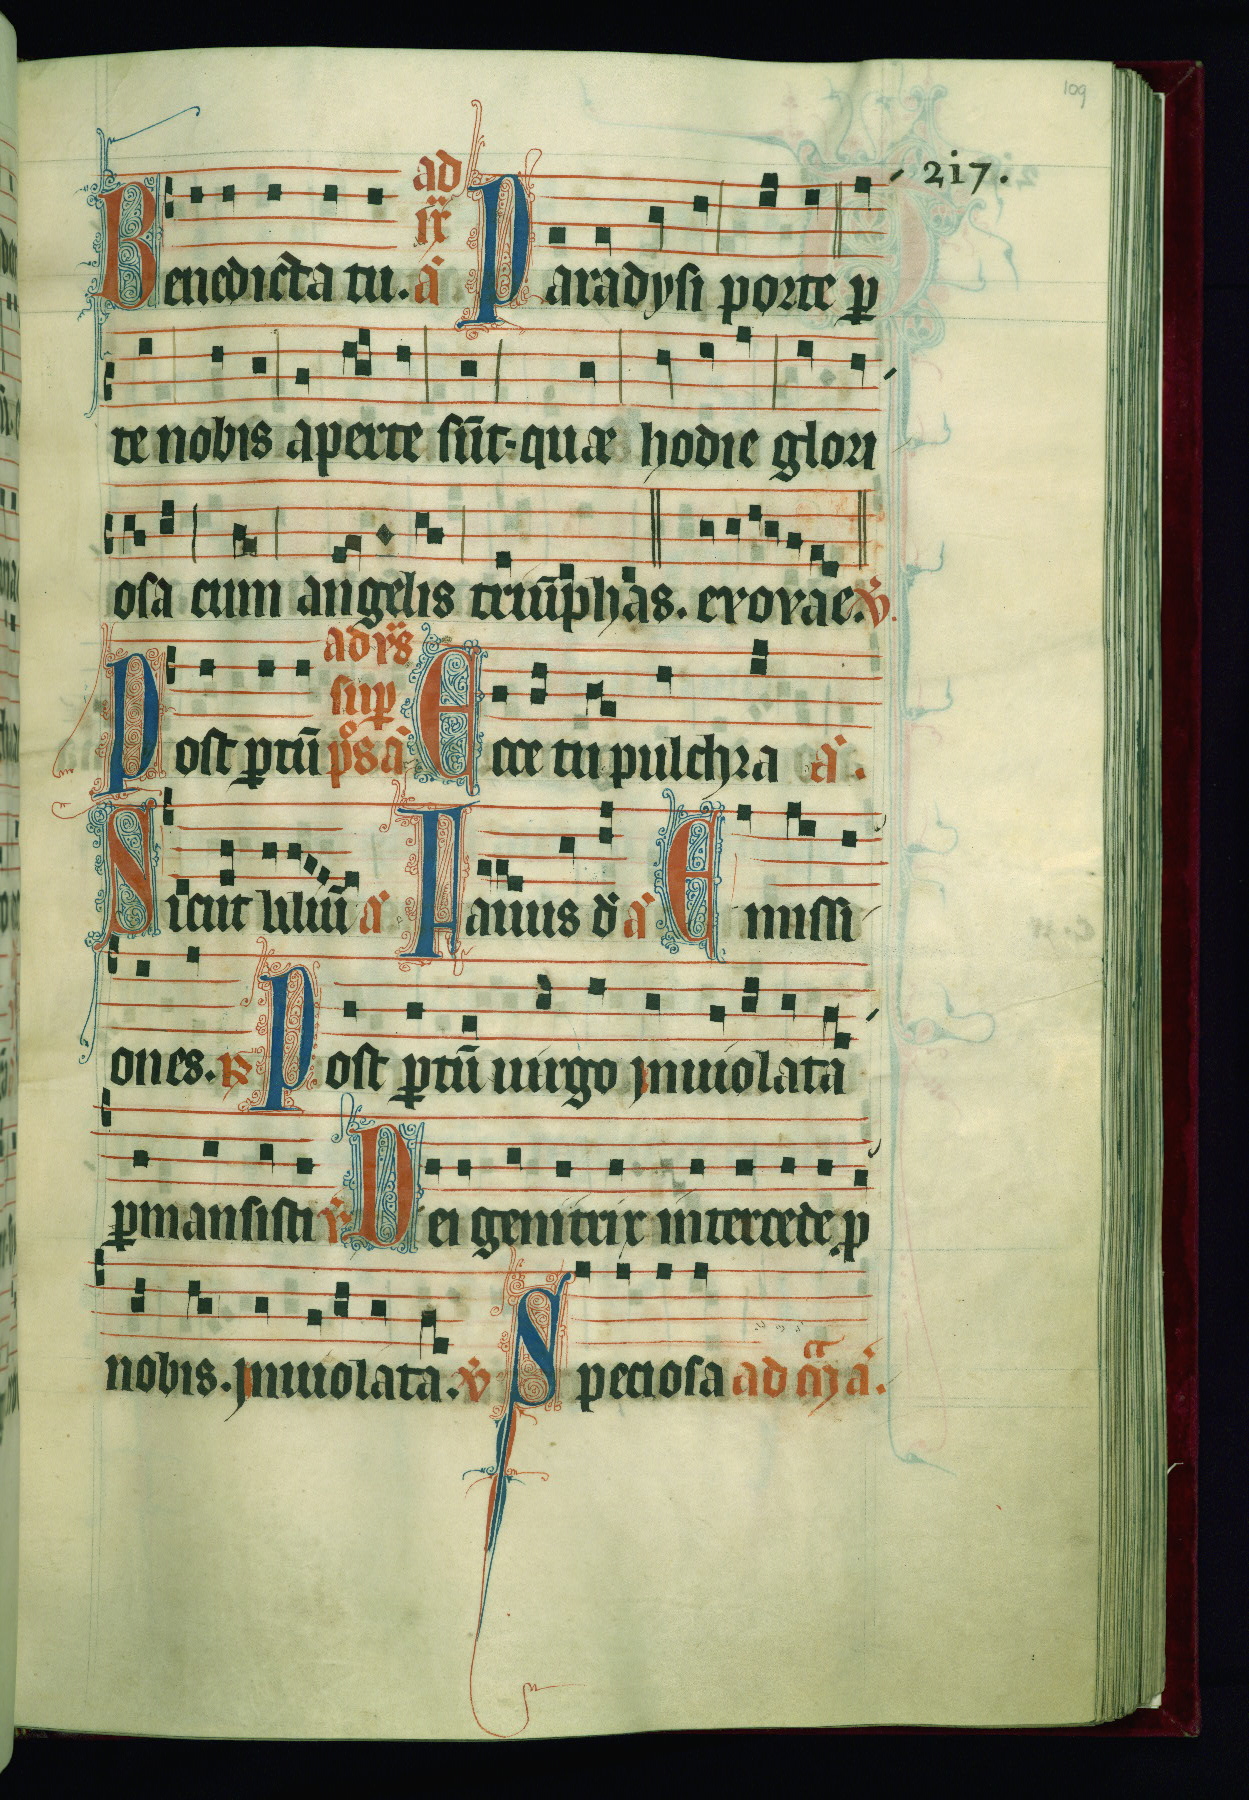 109
217.
Benedicta tu. ad ix a̅ Paradysi porte p
te nobis aperte su̅t. quæ hodie glori
osa cum angelis triu̅phas. evovae. v̅.
Post p̲tu̅ ad vs̅ sup̲ ps a̅ Ecce tu pulchra a̅.
Sicut liliu̅ a̅ Fauus d̅ a̅ Emissi
ones. R Post p̲tu̅ uirgo inuiolata
p̲mansisti v̅ Dei genitrix intercede p̲
nobis. inuiolata. v̅ Speciosa ad a̅.